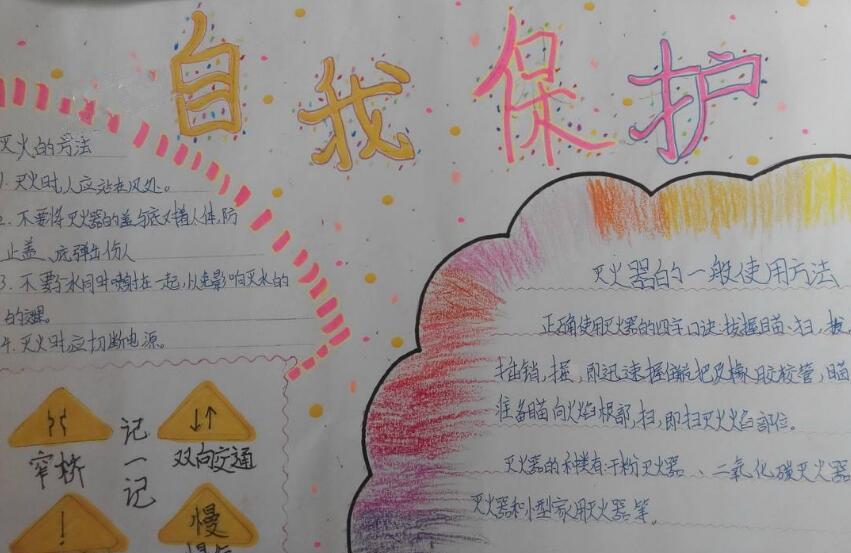 自我保护
灭火的方法
1. 灭火时,人应站在风处。
2. 不要将灭火器的盖与底对着人体,防
止盖、底弹出伤人
3. 不要与水同时喷射在一起,以免影响灭火的
的效果。
4. 灭火时应切断电源。
窄桥
记一记
双向交通
慢
灭火器的一般使用方法
正确使用灭火器的四字口诀:拔、握、瞄、扫,拔,
拍销,握,即迅速握住把及橡胶软管,瞄
准备瞄向火焰根部,扫,即扫灭火焰部位。
灭火器的种类有:干粉灭火器、二氧化碳灭火器
灭火器和小型家用灭火器等。